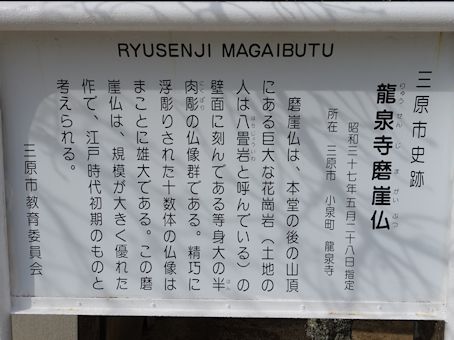 RYUSENJI MAGAIBUTU
三原市史跡
龍泉寺磨崖仏
りゅうせんじまがいぶつ
昭和三十七年五月二十八日指定
所在 三原市 小泉町 龍泉寺
磨崖仏は、本堂の後の山頂
にある巨大な花崗岩（土地の
人は八畳岩と呼んでいる）の
はちじょういわ
壁面に刻んである等身大の半
はん
肉彫の仏像群である。精巧に
にくぼり
浮彫りされた十数体の仏像は
まことに雄大である。この磨
崖仏は、規模が大きく優れた
作で、江戸時代初期のものと
考えられる。
三原市教育委員会